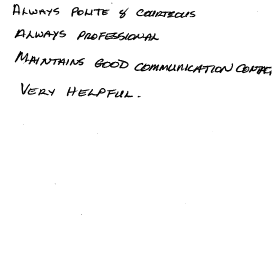 Always Polite & Courteous
Always Professional
Maintains good communication
Very Helpful.